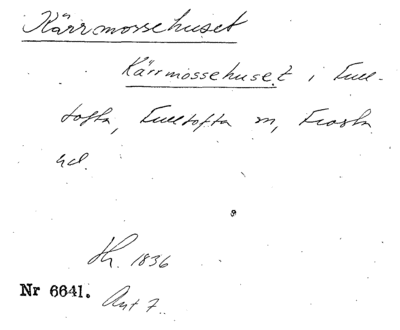 Kärrmossehuset
Kärrmossehuset i Full-
tofta, Fulltofta sn, Frosta
hd.
Hr. 1836
Nr 6641.
Ant 7.